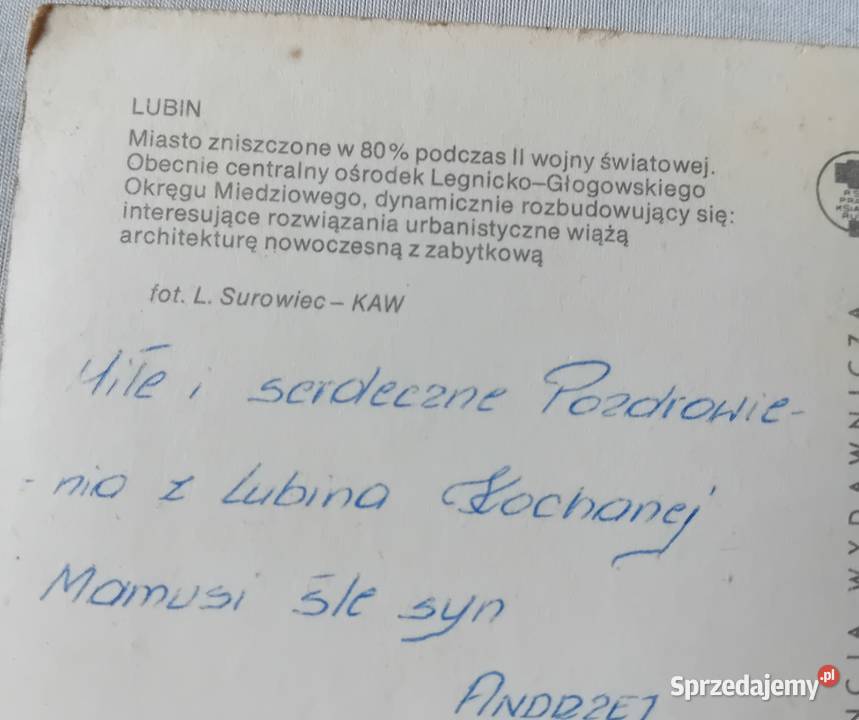 LUBIN
Miasto zniszczone w 80% podczas II wojny światowej.
Obecnie centralny ośrodek Legnicko–Głogowskiego
Okręgu Miedziowego, dynamicznie rozbudowujący się:
interesujące rozwiązania urbanistyczne wiążą
architekturę nowoczesną z zabytkową
fot. L. Surowiec – KAW
Miłe i serdeczne Pozdrowie-
- nia z Lubina Kochanej
Mamusi śle syn
ANDRZEJ
NCJA WYDAWNICZA
Sprzedajemy.pl